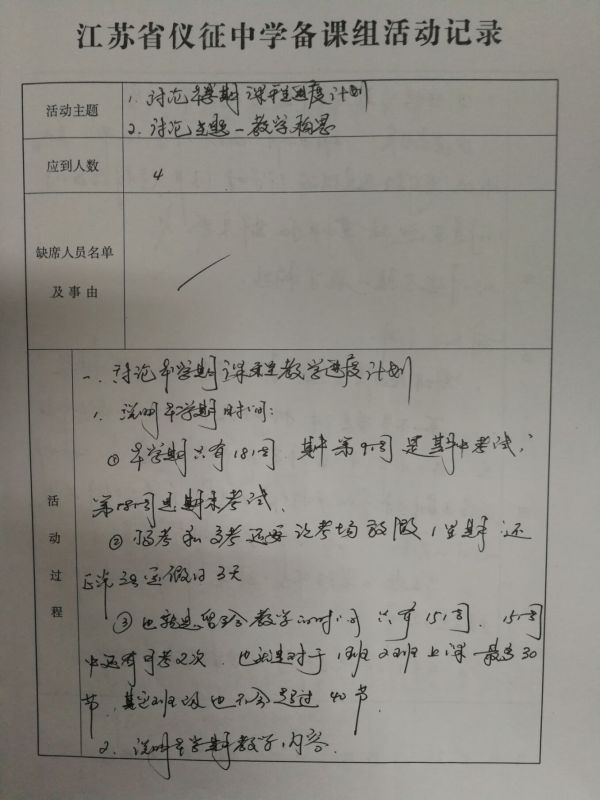 江苏省仪征中学备课组活动记录
活动主题
1. 讨论本学期课程进度计划
2. 讨论主题一教学构思
应到人数
4
缺席人员名单
及事由
活动过程
一、讨论本学期课程教学进度计划
1. 说明本学期时间:
① 本学期只有18周 其中第9周是期中考试,
第18周是期末考试.
② 高考还要设考场放假1星期 还
3天
③ 也就是留给教学的时间只有15周. 15周
中还有月考2次. 也就是对于1班2班上课最多30
节, 其它班级也不会超过40节.
2. 说明本学期教学内容.